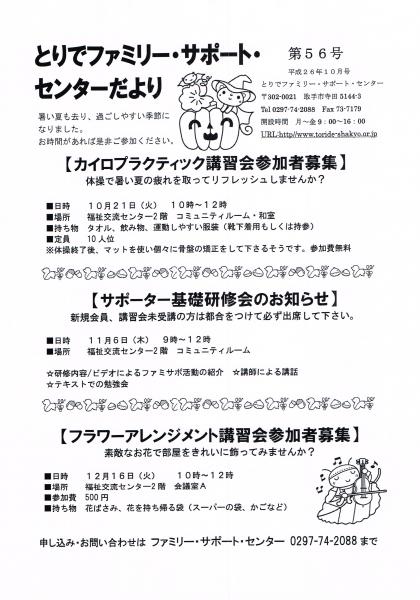 とりでファミリー・サポート・
センターだより
第56号
平成26年10月号
とりでファミリー・サポート・センター
〒302-0021 取手市寺田 5144-3
Tel 0297-74-2088 Fax 73-7179
開設時間 月～金 9：00～16：00
URL:http//www.toride-shakyo.or.jp
暑い夏も去り、過ごしやすい季節に
なりました。
お時間があれば是非ご参加ください。
【カイロプラクティック講習会参加者募集】
体操で暑い夏の疲れを取ってリフレッシュしませんか？
■日時 10月21日（火） 10時～12時
■場所 福祉交流センター2階 コミュニティルーム・和室
■持ち物 タオル、飲み物、運動しやすい服装（靴下着用もしくは持参）
■定員 10人位
※体操終了後、マットを使い個々に骨盤の矯正をして下さるそうです。参加費無料
【サポーター基礎研修会のお知らせ】
新規会員、講習会未受講の方は都合をつけて必ず出席して下さい。
■日時 11月6日（木） 9時～12時
■場所 福祉交流センター2階 コミュニティルーム
☆研修内容/ビデオによるファミサポ活動の紹介 ☆講師による講話
☆テキストでの勉強会
【フラワーアレンジメント講習会参加者募集】
素敵なお花で部屋をきれいに飾ってみませんか？
■日時 12月16日（火） 10時～12時
■場所 福祉交流センター2階 会議室A
■参加費 500円
■持ち物 花ばさみ、花を持ち帰る袋（スーパーの袋、かごなど）
申し込み・お問い合わせは ファミリー・サポート・センター 0297-74-2088 まで